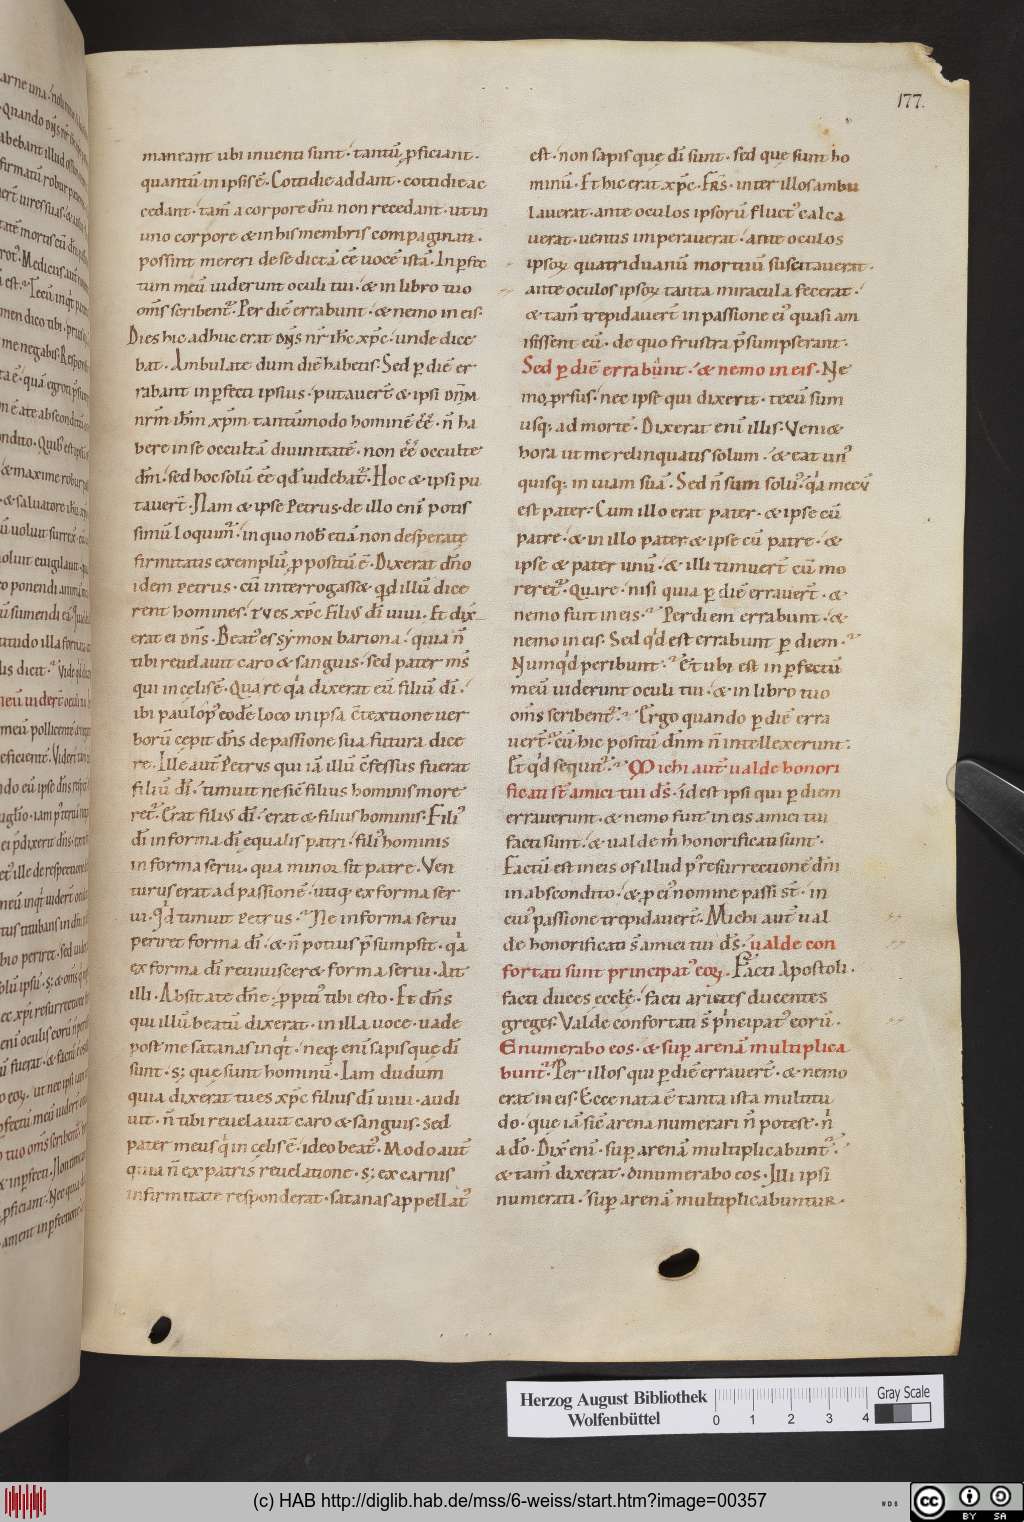 177.
maneant ubi inuenti sunt· tantū ꝓficiant·
quantū in ipsis ē· Cottidie addant· cottidie ac
cedant· tam̄ a corpore dn̄i non recedant· ut in
uno corpore & in his membris compaginati·
possint mereri de se dictā ēē uocē istā· Inꝑfec
tum meū uiderunt oculi tui· & in libro tuo
om̄s scribent᷑· Per diē errabunt· & nemo in eis·
Dies hic adhuc erat dn̄s nr̄ ih̄c xp̄c· unde dice
bat· Ambulate dum diē habetis· Sed ꝑ diē er
rabant inꝑfecti ipsius· putauer̄t & ipsi dn̄m
nrm̄ ih̄m xp̄m tantūmodo hominē ēē· n̄ ha
bere in se occultā diuinitatē· non ēē occulte
dm̄· sed hoc solū ēē qd̄ uidebat᷑· Hoc & ipsi pu
tauer̄t· Nam & ipse Petrus· de illo eni̅ potis
simū loquim᷑· in quo nob̄ etiā non desperate
firmitatis exemplū ꝓpositū ē· Dixerat dn̄o
idem petrus· cū interrogass& qd̄ illū dice
rent homines· tues xp̄c filius dī uiui· Et dix
erat ei dn̄s· Beatꝰ es symon bariona· quia n̄
tibi reuelauit caro & sanguis· sed pater ms̄
qui in celis ē· Quare qa dixerat eū filiū dī·
ibi paulo pꝰ eodē loco in ipsa c̄textione uer
borū cepit dn̄s de passione sua futura dice
re· Ille aut̄ Petrus qui iā illū c̄fessus fuerat
filiū dī· timuit ne sic̄ filius hominis more
ret᷑· Erat filius dī· erat & filius hominis· Filiꝰ
dī in forma dī equalis patri· filiꝰ hominis
in forma serui· qua minor sit patre· Ven
turus erat ad passionē· utiq; ex forma ser
ui· Qd̄ timuit Petrus· Ne in forma serui
periret forma dī· & n̄ potius p̄sumpsit· qa
ex forma dī reuiuiscer& forma serui· Ait
illi· Absit a te dn̄e· ꝓpitiꝰ tibi esto· Et dn̄s
qui illū beatū dixerat· in illa uoce· uade
post me satanas inqt· neq; eni̅ sapis que dī
sunt· s; que sunt hominū· Iam dudum
quia dixerat tu es xp̄c filius dī uiui· audi
uit· n̄ tibi reuelauit caro & sanguis· sed
pater meus q̇ in celis ē· ideo beatꝰ· Modo aut̄
quia n̄ ex patris reuelatione· s; ex carnis
infirmitate responderat· satanas appellatꝰ
est· non sapis que dī sunt· sed que sunt ho
minū· Et hic erat xp̄c· Frs̄· inter illos ambu
lauerat· ante oculos ipsorū fluctꝰ calca
uerat· uentis imperauerat· ante oculos
ipsoꝝ quatriduanū mortuū suscitauerat·
ante oculos ipsoꝝ tanta miracula fecerat·
& tam̄ trepidauer̄t in passione eiꝰ quasi am
isissent eū· de quo frustra p̄sumpserant·
Sed ꝑ diē errabūnt· & nemo in eis· Ne
mo ꝓrsus· nec ipse qui dixerit· tecū sum
usq; ad mortē· Dixerat eni̅ illis· Veni&
hora ut me relinquatis solum· & eat unꝰ
quisq; in uiam suā· Sed n̄ sum solꝰ· qa mecū
est pater· Cum illo erat pater· & ipse cū
patre· & in illo pater & ipse cū patre· &
ipse & pater unū· & illi timuer̄t cū mo
reret᷑· Quare· nisi quia ꝑ diē errauer̄t· &
nemo fuit in eis· Per diem errabunt· &
nemo in eis· Sed qd̄ est errabunt ꝑ diem·
Numqd̄ peribunt· Et ubi est inꝑfectū
meū uiderunt oculi tui· & in libro tuo
om̄s scribent᷑· Ergo quando ꝑ diē erra
uer̄t· cū hic positū dn̄m n̄ intellexerunt·
Et qd̄ sequit᷑· Michi aut̄ ualde honori
ficati st̄ amici tui ds̄· id est ipsi qui ꝑ diem
errauerunt· & nemo fuit in eis amici tui
facti sunt· & ualde m̄ honorificati sunt·
Factū est in eis os illud pꝰ resurrectionē dn̄i
in abscondito· & ꝓ eiꝰ nomine passi st̄· in
cuiꝰ passione trepidauer̄t· Michi aut̄ ual
de honorificati s̄ amici tui ds̄· ualde con
fortati sunt principatꝰ eoꝝ· Facti Apostoli·
facti duces eccłē· facti arietes ducentes
greges· Valde confortati s̄ pncipatꝰ eorū·
Enumerabo eos· & suꝑ arenā multiplica
bunt᷑· Per illos qui ꝑ diē errauer̄t· & nemo
erat in eis· Ecce nata ē tanta ista multitu
do· que iā sic̄ arena numerari n̄ potest· n̄
a dō· Dix̄ eni̅· suꝑ arenā multiplicabunt᷑·
& tam̄ dixerat· dinumerabo eos· Illi ipsi
numerati· suꝑ arenā multiplicabuntur·
Herzog August Bibliothek
Wolfenbüttel
0 1 2 3 4
Gray Scale
(c) HAB http://diglib.hab.de/mss/6-weiss/start.htm?image=00357
cc BY SA